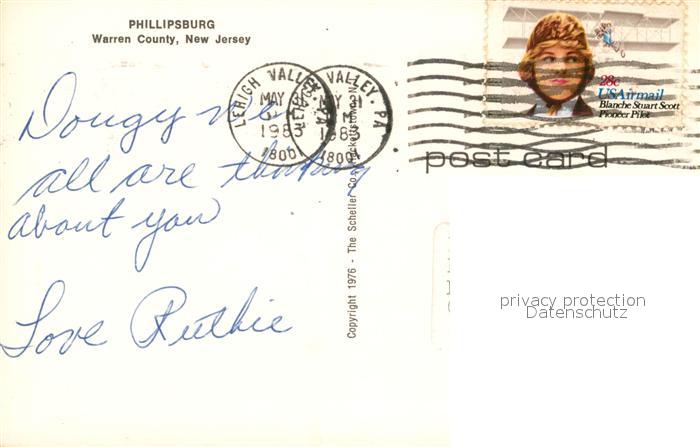 PHILLIPSBURG
Warren County, New Jersey
LEHIGH VALLEY, PA
MAY 31
1983
1800
VALLEY, PA
1983
1800
28c
USAirmail
Blanche Stuart Scott
Pioneer Pilot
post card
Dougy we
all are thinking
about you
Love Ruthie
Copyright 1976 - The Scheller Co., Hackettstown, N.J.
privacy protection
Datenschutz